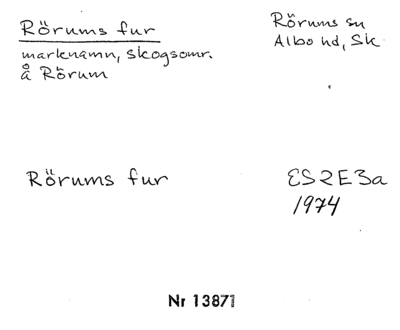 Rörums fur
marknamn, skogsomr.
å Rörum
Rörums sn
Albo hd, Sk
Rörums fur
ES2E3a
1974
Nr 13871